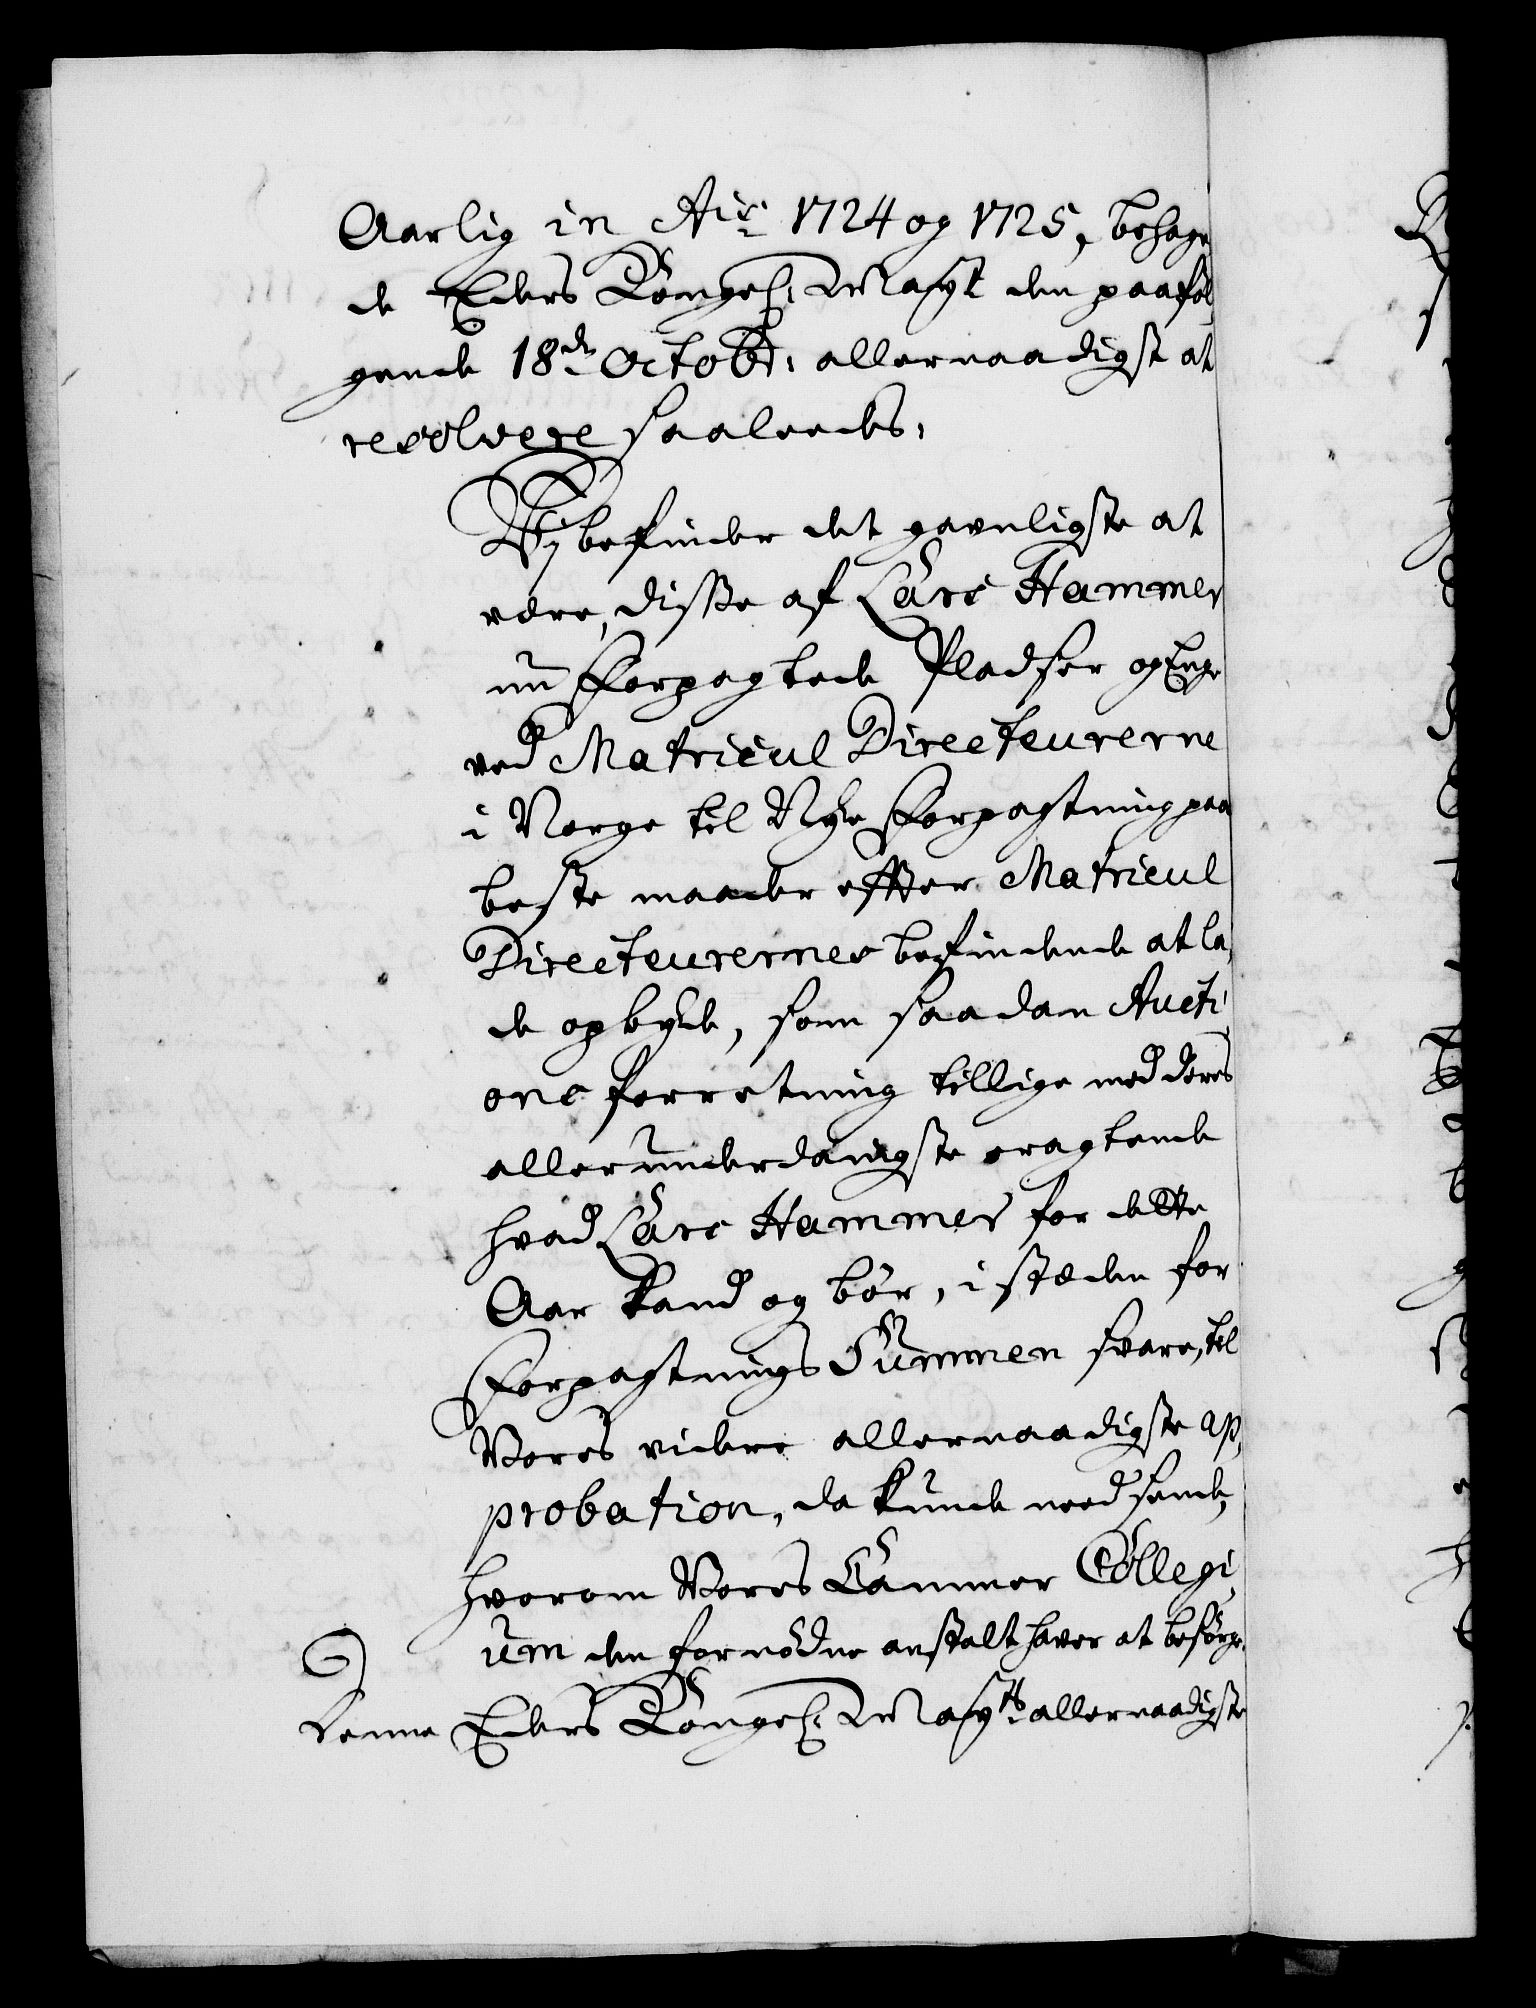 Aarlig in Ais 1724 og 1725, behage
de Eders Kongel: Mayt den paaføl,
gende 18de Octobr: allernaadigst at
resolvere saaleedes,
Vij befinder det gavnligste at
være, disse af Lars Hammer
nu Forpagtede Pladser og Enge
ved Matricul Directeurerne
i Norge til Nye Forpagtning paa
beste maader effter Matricul
Directeurernes befindende at la,
de opbyde, som saadan Aucti,
ons forretning tillige med deres
allerunderdanigste eragtende
hvad Lars Hammer for dette
Aar kand og bør, i stæden for
Forpagtnings Summen svare, til
Vores videre allernaadigste ap,
probation, da kunde needsende,
hvorom Vores Cammer Collegi,
um den fornødne anstalt haver at besørge.
Denne Eders Kongel: Mayts allernaadigste